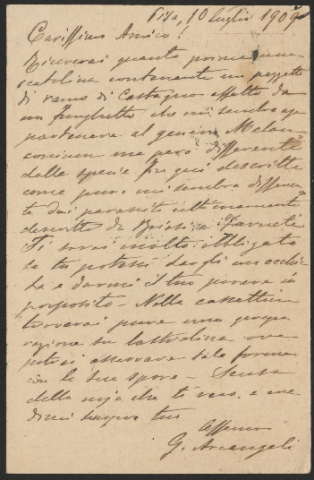 Pisa, 10 luglio 1909
Carissimo Amico!
Riceverai quanto prima una
scatolina contenente un pezzetto
di ramo di Castagno affetto da
un funghetto che mi sembra ap
partenere al genere Melan
conium ma però differente
dalle specie fin qui descritte
come pure mi sembra differen
te dai parassiti ultimamente
descritti da Briosi e Farneti
Ti sarei molto obbligato
se tu potessi dargli un occhia
ta e darmi il tuo parere in
proposito - Nella cassettina
troverai pure una prepa
razione su lastrolina ove
potrai osservare la forma
le sue spore - Scusa
della noja che ti reco, e cre
dimi sempre tuo
Affmo
G. Arcangeli